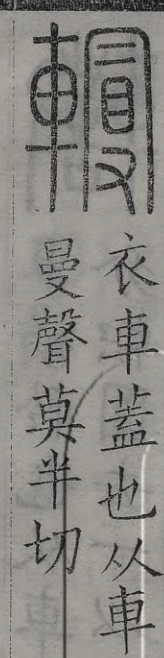 轛
衣車蓋也从車
曼聲莫半切